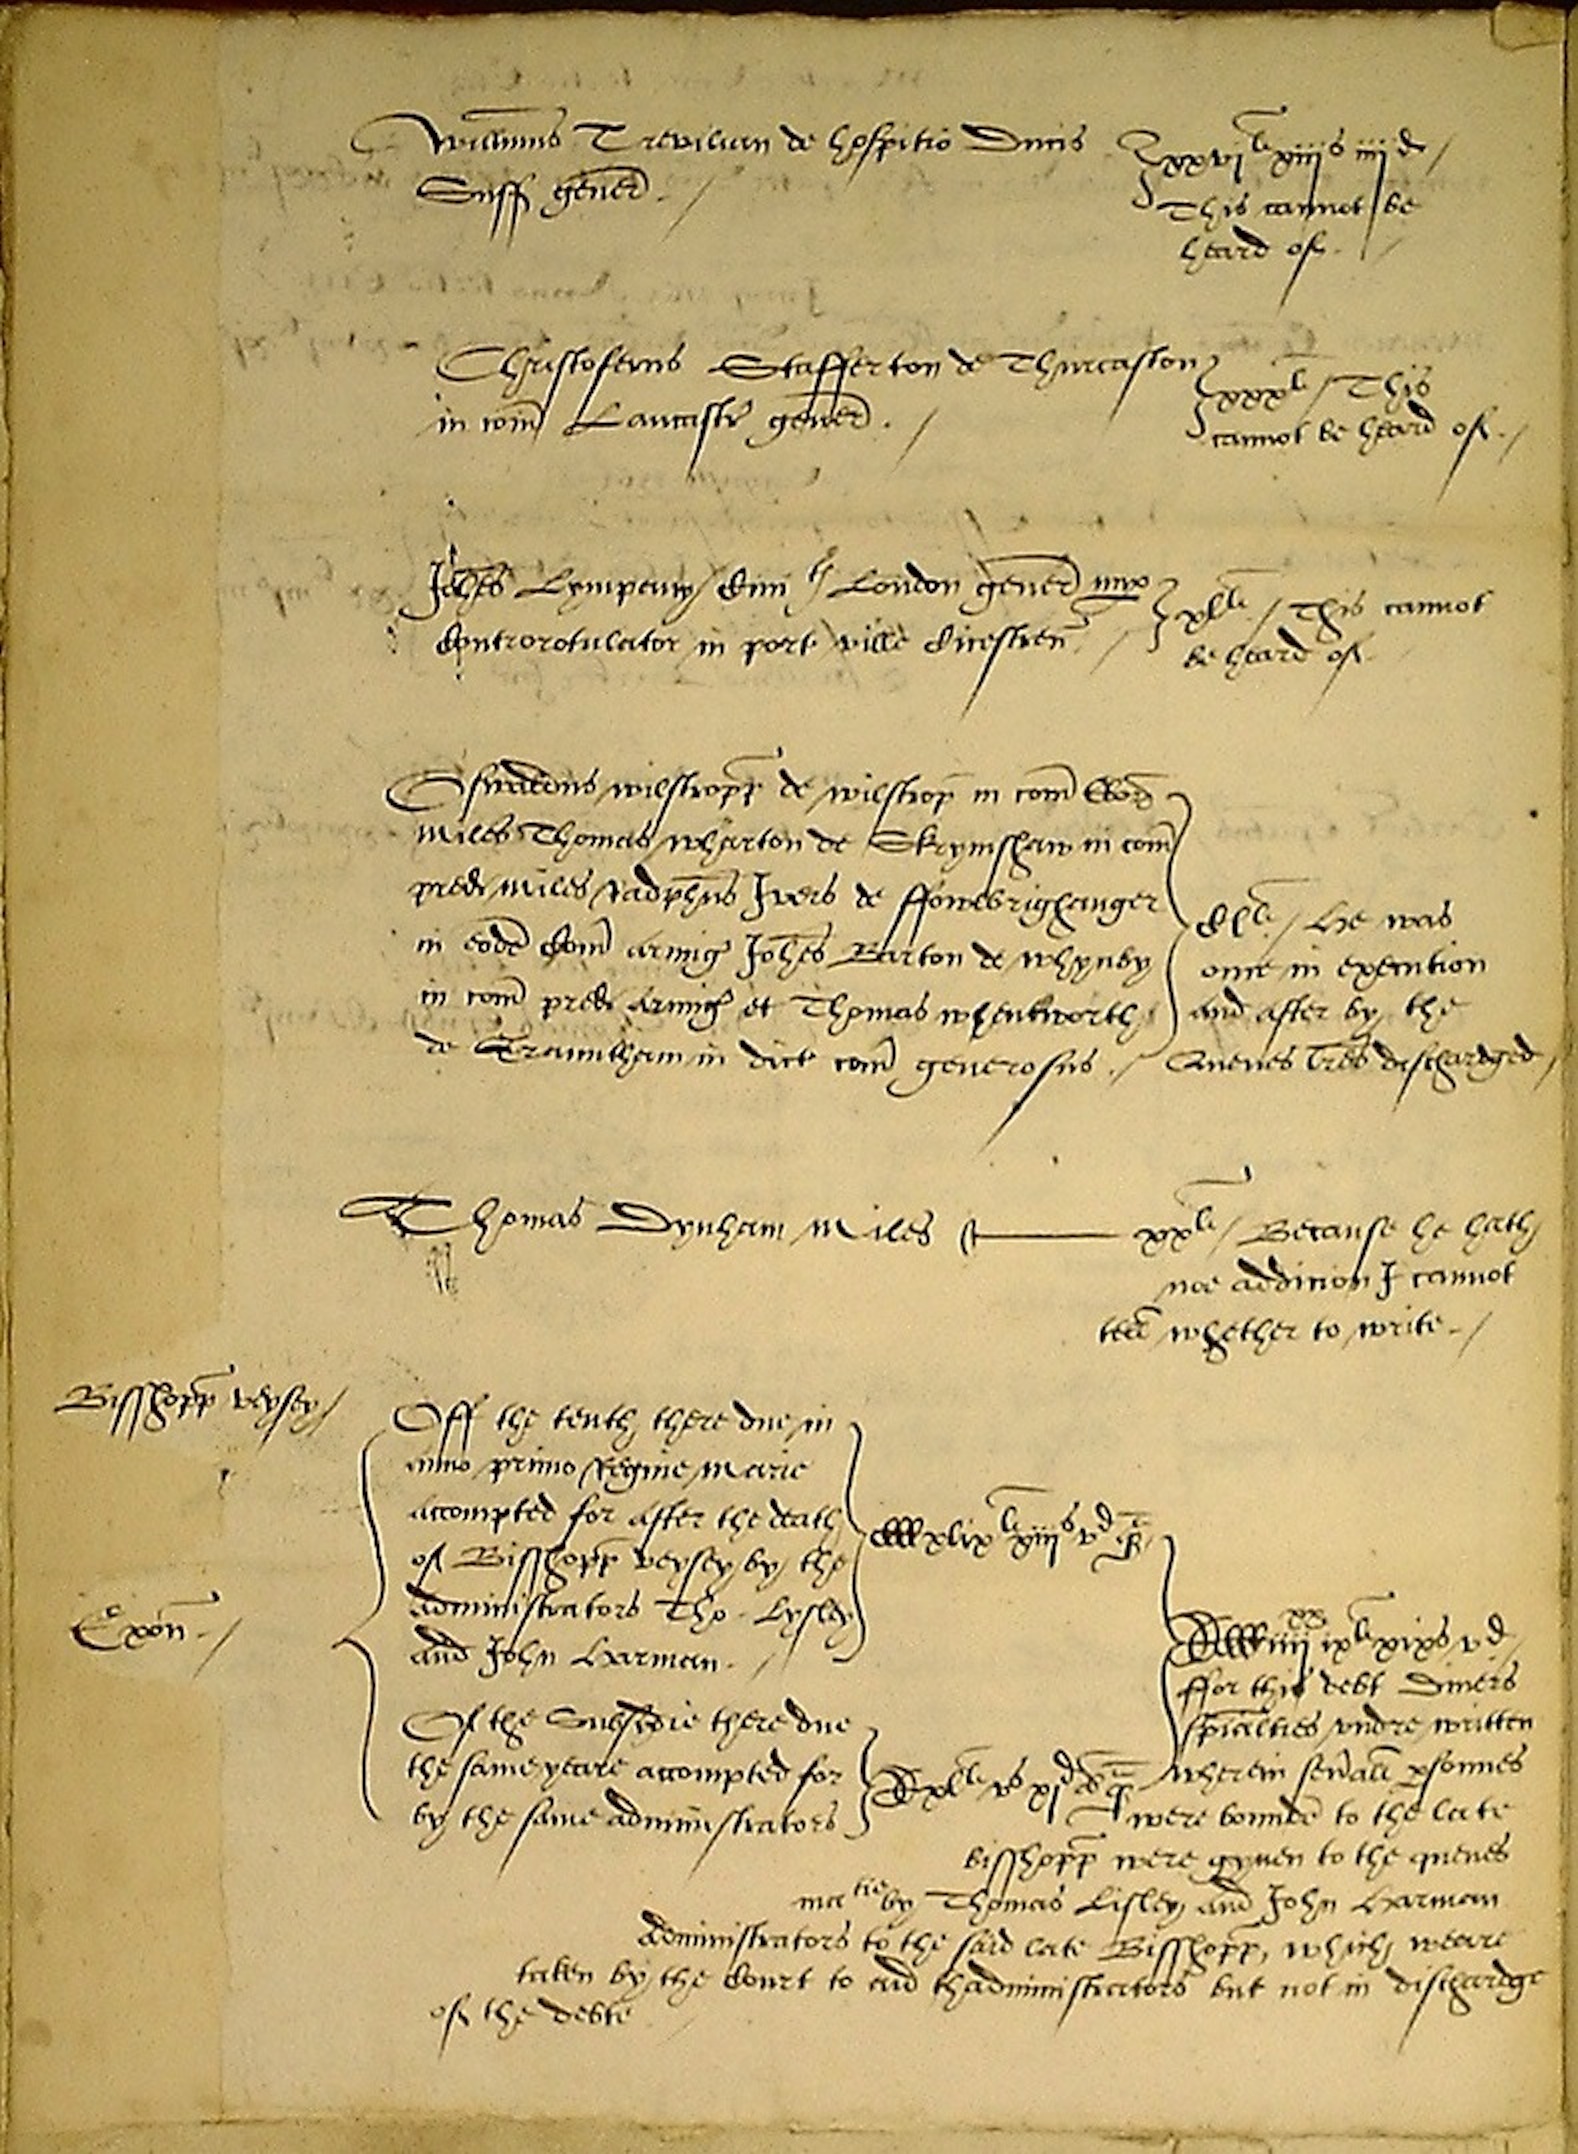 Willimus Trevilian de hospitio Ducis
Suff genero[d]
xxvi li xiiis iiii d
This cannot be
heard of
Christoferus Stafferton de Thurcaston
in com Lancastr genero[d]
xxx li / This
cannot be heard of
Johes Lympany London gener nup
Controrotulator in port ville Cicestren
xl li / This cannot
be heard of
Oswaldus wilstropp de wilstrop in com Ebor
miles Thomas wharton de Skrymshaw in com
pred miles Radphus Ivers de
in eode Com armig Johes Barton de whynby
in com pred Armig et Thomas whentworth
de in dict com generosus
CC li / He was
once in execution
and after by the
Quenes lres dischardged
Thomas Dynham Miles
xx li / Because he hath
noe addicion I cannot
tell whether to write
Bisshopp veysey
Exon
Off the tenth there due in
anno primo Regine Marie
accompted for after the death
of Bisshopp veysey by the
administrators Tho. Lysley
and John Harman
CCCxlix li xiiis vd
Of the Subsedie there due
the same yeare accompted for
by the same administrators
xl li vs xi d
iiii xx ix li xixs v d
ffor this debt Divers
spialties undre written
wherein serall psonnes
were bounde to the late
bisshopp were gyven to the quenes
matie by Thomas Lisley and John Harman
Administrators to the said late Bisshopp, which weare
taken by the Court to aid thadministrators but not in dischardge
of the debte